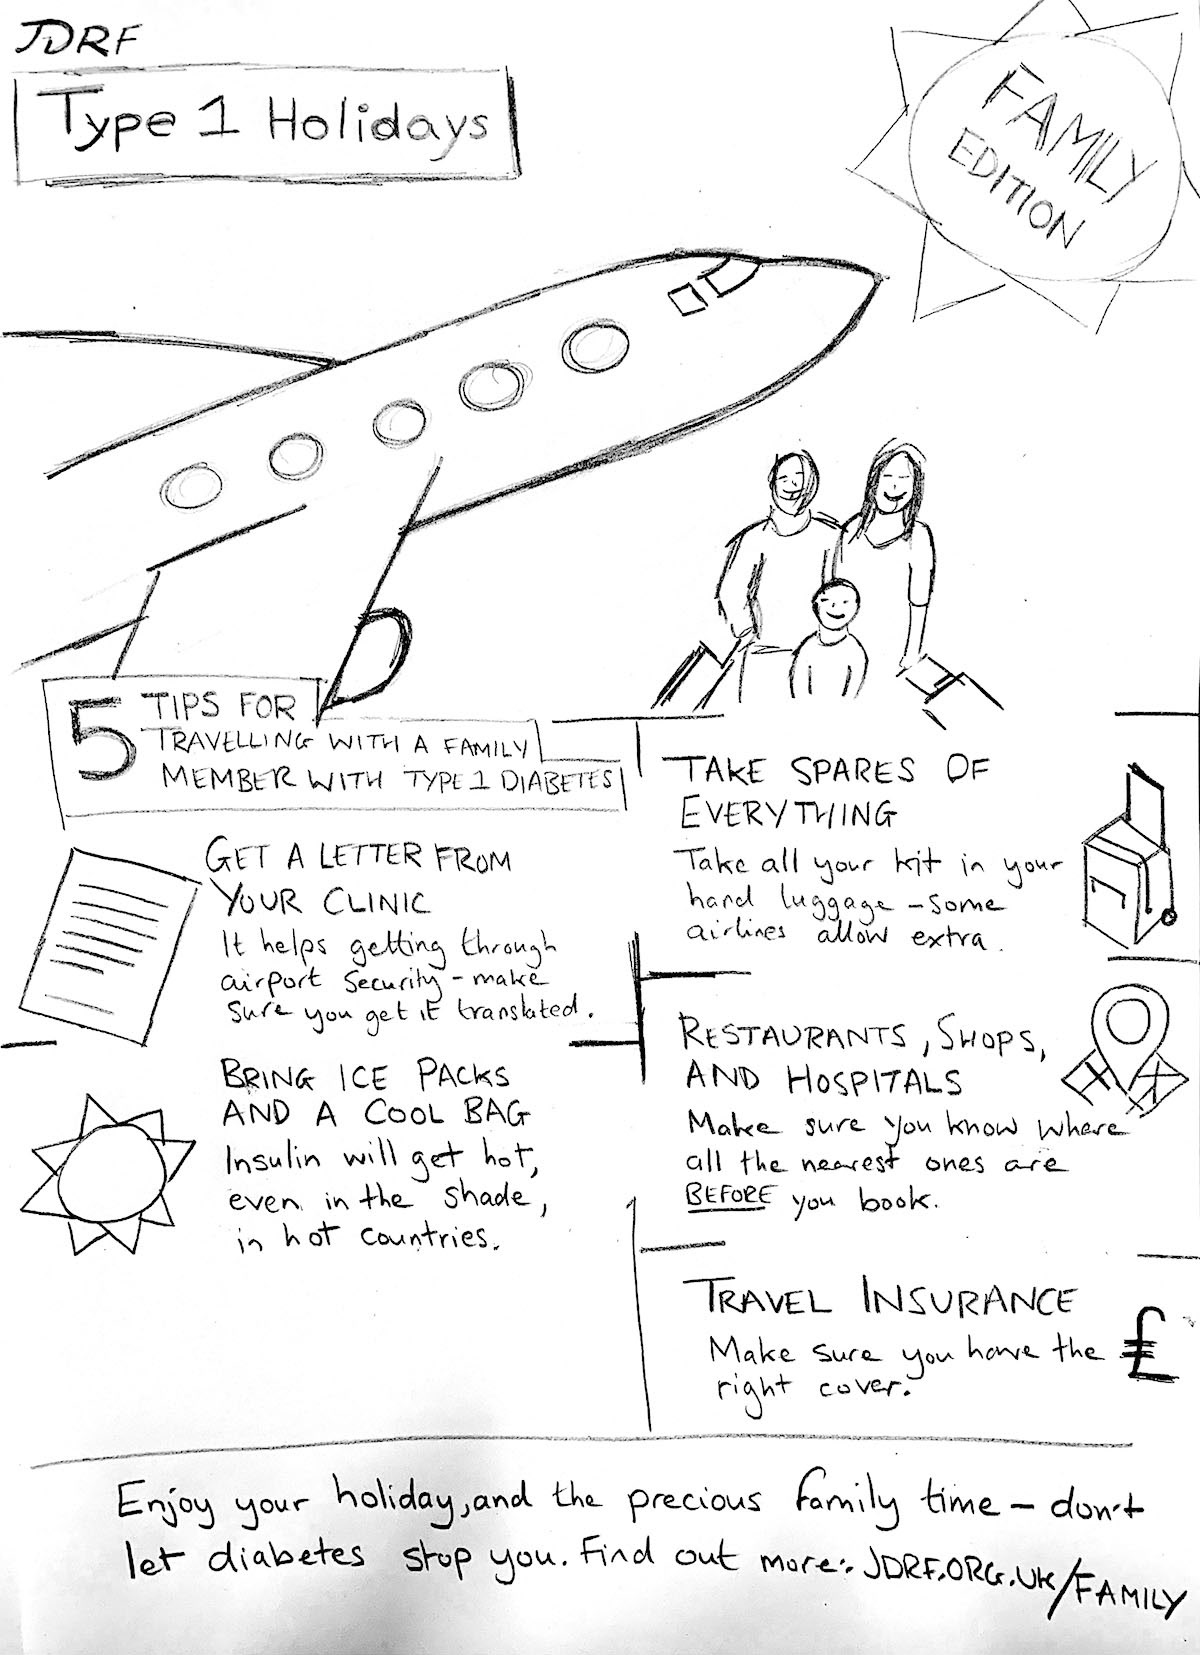 JDRF
Type 1 Holidays
FAMILY
EDITION
5 TIPS FOR
TRAVELLING WITH A FAMILY
MEMBER WITH TYPE 1 DIABETES
GET A LETTER FROM
YOUR CLINIC
It helps getting through
airport Security - make
sure you get it translated.
BRING ICE PACKS
AND A COOL BAG
Insulin will get hot,
even in the shade,
in hot countries.
TAKE SPARES OF
EVERYTHING
Take all your kit in your
hand luggage - some
airlines allow extra.
RESTAURANTS, SHOPS,
AND HOSPITALS
Make sure you know where
all the nearest ones are
BEFORE you book.
TRAVEL INSURANCE
Make sure you have the
right cover.
£
Enjoy your holiday, and the precious family time - don't
let diabetes stop you. Find out more: JDRF.ORG.UK/FAMILY